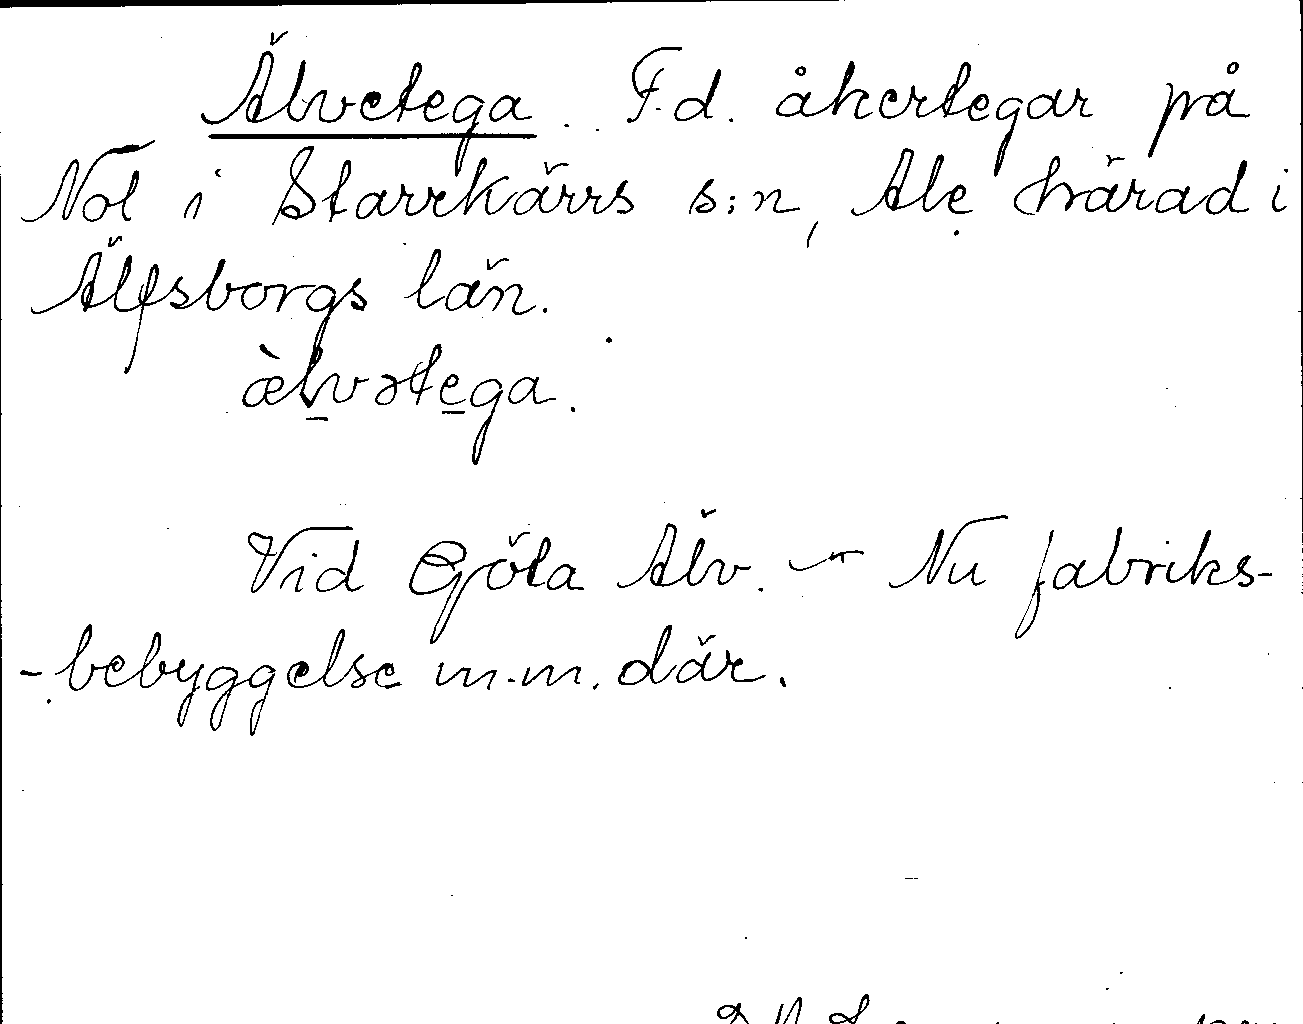 Älvetega. F.d. åkertegar på
Nol i Starrkärrs s:n, Ale härad i
Älfsborgs län.
æ̀l̠vəte̠ga.
Vid Göta Älv. — Nu fabriks-
-bebyggelse m.m. där.